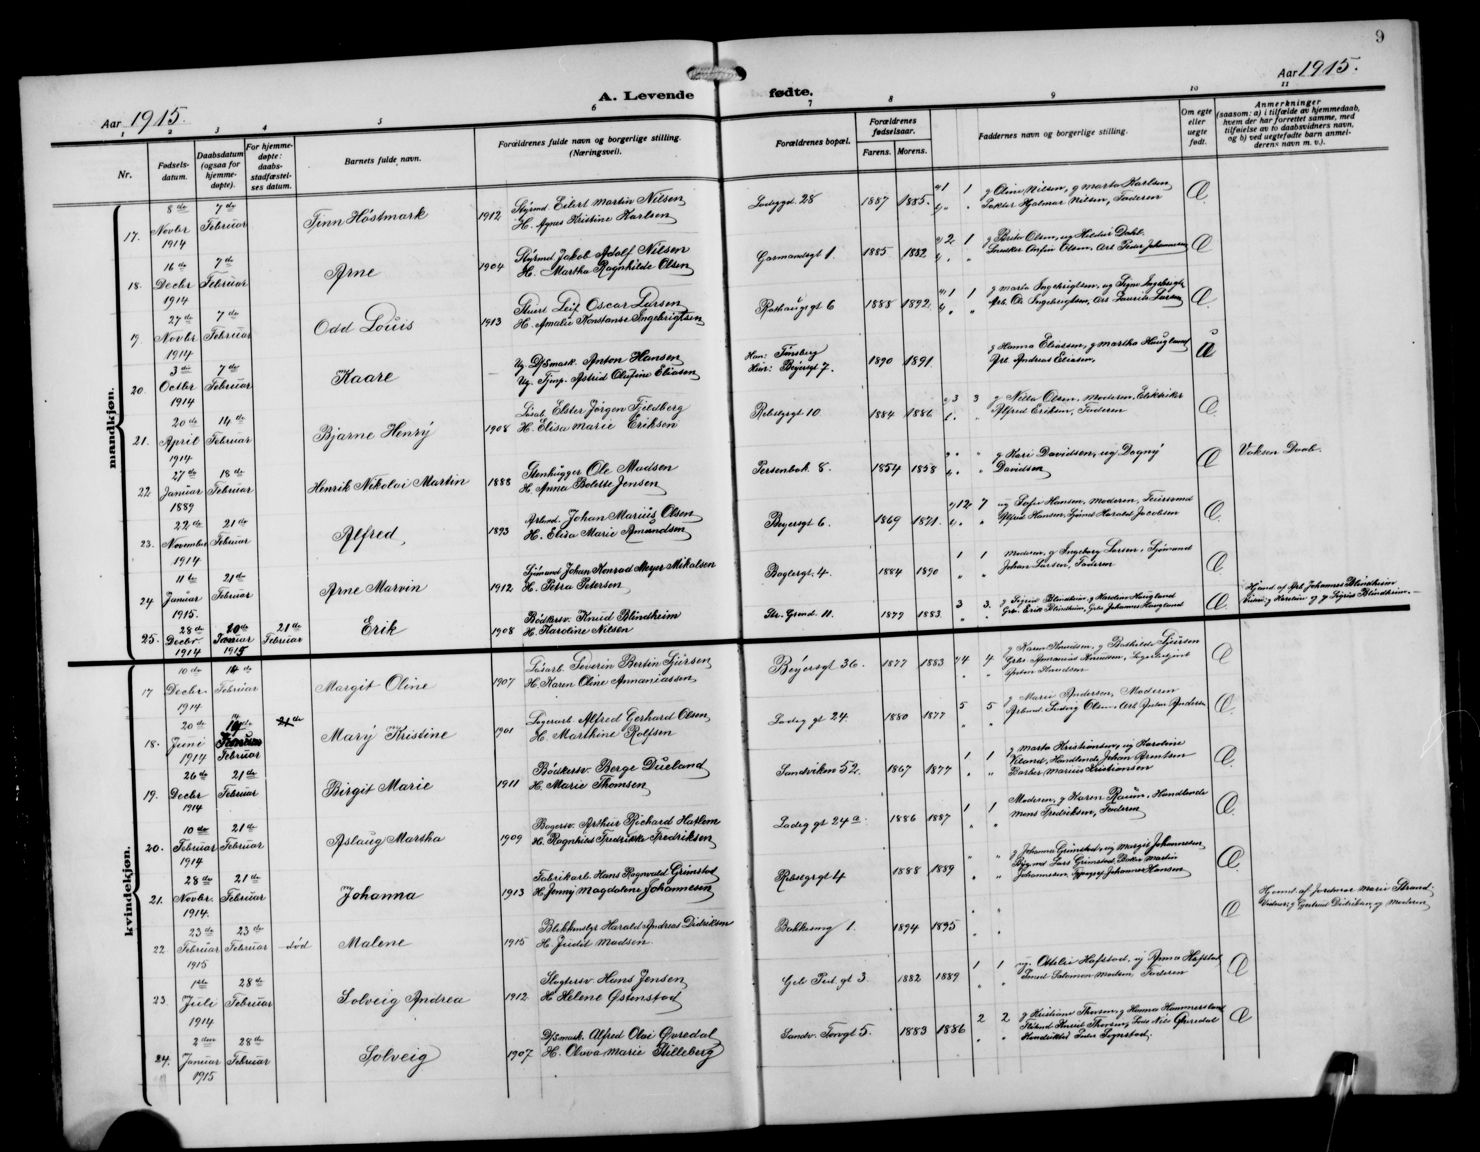 9
Aar 1915.
A. Levende fødte.
Aar 1915.
1 2 3 4 5 6 7 8 9 10 11
Nr.
Fødsels-
datum.
Daabsdatum
(ogsaa for
hjemme-
døpte).
For hjemme-
døpte:
daabs-
stadfæstel-
ses datum.
Barnets fulde navn.
Forældrenes fulde navn og borgerlige stilling.
(Næringsvei).
Forældrenes bopæl.
Forældrenes
fødselsaar.
Farens. Morens.
Faddernes navn og borgerlige stilling.
Om egte
eller
uegte
født.
Anmerkninger
(saasom: a) i tilfælde av hjemmedaab,
hvem der har forrettet samme, med
tilføielse av to daabsvidners navn,
og b) ved uegtefødte barn anmel-
derens navn m. v.).
mandkjøn.
17. 8de Novbr 1914 7de Februar Finn Höstmark 1912
Styrmd Eilert Martin Nilsen
H. Agnes Kristine Karlsen
Ladegd. 28 1887 1885. 1 1
g Oline Nilsen, g Marta Karlsen
Hjalmar Nilsen, Faderen
18. 16de Decbr 1914 7de Februar Arne 1904
Styrmd Jakob Adolf Nilsen
H. Martha Ragnhilde Olsen
Garmandsgt 1. 1885 1882 2 1
g Berta Olsen, ug Hilda Dahl,
Snedker Olsen, Arb Peder Johannesen
19. 27de Novbr 1914 7de Februar Odd Louis 1913
Stuert Leif Oscar Larsen
H. Amalie Konstanse Ingebrigtsen
Rothaugsgt 6 1888 1892. 1 1
g Marta Ingebrigtsen, ug Signe Ingebrigts
Arb. Ole Ingebrigtsen, Arb Laurits Larsen
20. 3die Octbr 1914 7de Februar Kaare
Ug. D/Smask. Anton Hansen
Ug. Tjnp. Astrid Olufine Eliasen
Han: Tønsberg
Hun: Beyersgt 7. 1890 1891
g Hanna Eliassen, g Martha Haugland
Arb Andreas Eliasen,
21. 20de April 1914 14de Februar Bjarne Henry 1908
Løsarb. Elster Jörgen Fjeldberg
H. Elisa Marie Eriksen
Rebslgrgt 10 1884 1886 3 3
g Nilla Olsen, Moderen, Elektriker
Alfred Eriksen, Faderen
22 27de Januar 1889 18de Februar Henrik Nikolai Martin 1888
Stenhugger Ole Madsen
H. Anna Bolette Jensen
Persenbak 8. 1854 1858
g Kari Davidsen, ug Dagny
Davidsen
Voksen Daab.
23. 22de November 1914 21de Februar Alfred 1893
Arbmd. Johan Marius Olsen
H. Elisa Marie Amundsen
Beyersgt 6. 1869 1871 12 7
ug Sofie Hansen, Moderen,
Alfred Hansen, Sjömd Harald Jacobsen
24 11te Januar 1915. 21de Februar Arne Marvin 1912
Sjömand Johan Konrad Meyer Mikalsen
H. Petra Petersen
Baglergt. 4. 1884 1890 1 1
Moderen, g Ingeborg Larsen, Sjömand
Johan Larsen, Faderen
25. 28de Decbr. 1914 20de Januar 1915 21de Februar Erik 1908
Bødkersv. Knud Blindheim
H. Karoline Nilsen
Str. Grund. 11. 1877 1883. 3 3.
g Sigrid Blindheim, g Karoline Haugland
Grb. Erik Blindheim, Grb. Johannes Haugland
Hjemd. af Arb Johannes Blindheim
Vidne: g Karoline og g Sigrid Blindheim.
kvindekjøn.
17 10de Decbr. 1914 14de Februar Margit Oline 1907
Løsarb. Severin Bertin Sjursen
H. Karen Oline Annaniassen
Beyersgt 36. 1877 1883 4 4
g Karen Knudsen, g Bathilde Sjursen
Grbs Annanias Knudsen,
Anton Knudsen
18. 20de Juni 1914 14de Februar Mary Kristine 1901
Lagerarb. Alfred Gerhard Olsen
H. Marthine Rolfsen
Ladeg gt 24 1880 1877 5 5
g Marie Andersen, Moderen
Arbmd Ludvig Olsen, Arb Anton Andersen
19. 26de Decbr 1914 21de Februar Birgit Marie 1911
Bödkersv. Berge Dueland
H. Marie Thomsen
Sandviken 52. 1867 1877 1 1
g Marta Kristiansen, ug Karoline
Viland, Handlende Johan Arentsen
Barber Marius Kristiansen
20. 10de Februar 1914 21de Februar Aslaug Martha 1909
Bagersv. Arthur Richard Hatlem
H. Ragnhild Fredrikke Fredriksen
Ladeg gt 24a. 1886 1887 1 1
Moderen, g Karen Raum, Handlende
Mons Fredriksen, Faderen
21. 28de Novbr. 1914. 21de Februar Johanna 1913
Fabrikarb. Hans Ragnvald Grimstad
H. Jenny Magdalene Johannesen
Rebslgrgt 4 1888 1889
g Johanna Grimstad, ug Margit Johannesen
Bygmd Lars Grimstad, Baker Martin
Johannesen, Typograf Johannes Hansen
22 23de Februar 1915 23de Februar død Malene 1915
Blikkenslgr Harald Andreas Didriksen
H. Judit Madsen.
Bakkesmg 1. 1894 1895
Hjemd. af Jordmor Marie Strand.
Vidner: g Gertrud Didriksen, og Moderen
23. 1ste Juli 1914 28de Februar Solveig Andrea 1912
Slagtersv Hans Jensen
H Helene Østenstad
Geb Ped. gt 3 1882 1889 1 1
ug. Ottilie Hafstad, ug Anna Hafstad
Salomon Madsen Faderen
24. 2den Januar 1915 28de Februar Solveig 1907
D/Smask. Alfred Olai Øvredal
H. Olava Marie Stilleberg
Sandv. Torvgt 5. 1883 1886 2 2
g Kristiane Thorsen, g Hanna Hammersland
Thorsen, Nils Øvredal
Peder Sognstad,